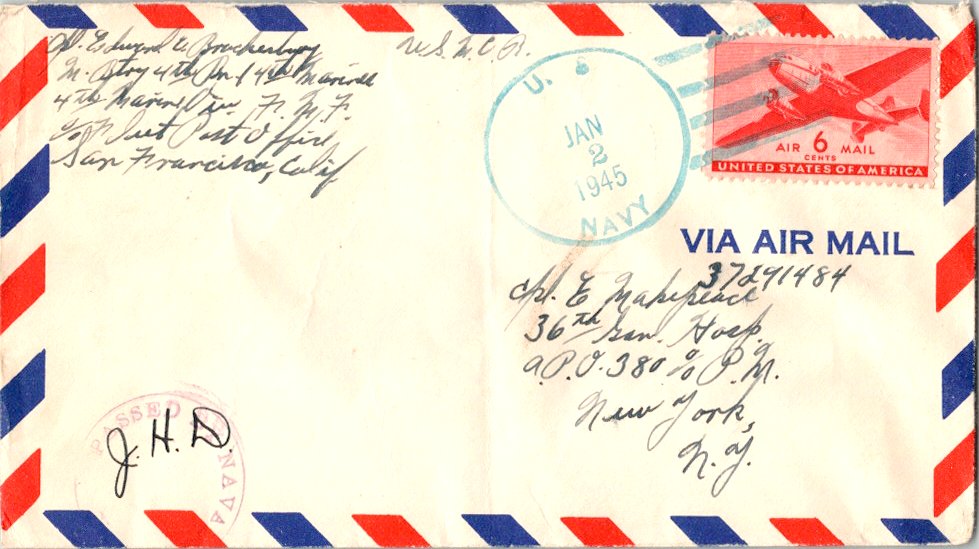 U.S.M.C.R.
M. Btry 4th Bn 14th Marines
4th Marine Div. F.M.F.
c/o Fleet Post Office
San Francisco, Calif
U. S.
JAN
2
1945
NAVY
AIR 6 MAIL
CENTS
UNITED STATES OF AMERICA
VIA AIR MAIL
37291484
Cpl. E Makepeace
36th Gen. Hosp.
A.P.O. 380 % P.M.
New York,
N.Y.
PASSED BY NAVA
J.H.D.